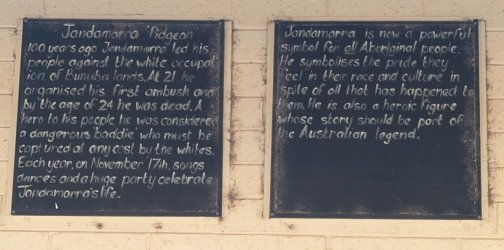 Jandamarra 'Pidgeon'
100 years ago Jandamarra led his
people against the white occupat
ion of Bunuba lands. At 21 he
organised his first ambush and
by the age of 24 he was dead. A
hero to his people he was considered
a dangerous 'baddie' who must be
captured at any cost by the whites.
Each year, on November 17th, songs
dances and a huge party celebrate
Jandamarra's life.
Jandamarra is now a powerful
symbol for all Aboriginal people.
He symbolises the pride they
feel in their race and culture in
spite of all that has happened to
them. He is also a heroic figure
whose story should be part of
the Australian legend.